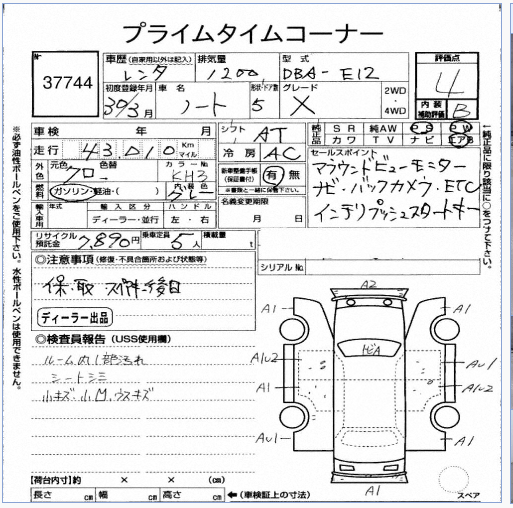 プライムタイムコーナー
№ 37744
車歴(自家用以外は記入) レンタ
排気量 1200
型式 DBA-E12
評価点 4
初度登録年月 30/3月
車名 ノート
形状・ドア数 5
グレード X
2WD・4WD
内装補助評価 B
車検 年 月
シフト AT
純正品 SR 純AW PS PW
カワ TV ナビ エアB
走行 43,010 Km マイル
冷房 AC
セールスポイント
アラウンドビューモニター
ナビ・バックカメラ・ETC
インテリプッシュスタートキー
外色 元色 クロ 色替
カラー No KH3
内装色 グレー
新車整備手帳(保証書付) 有・無
※書類と一緒に保管下さい。
燃料 ガソリン・軽油・( )
輸入車用 年式 輸入区分 ディーラー・並行 ハンドル 左・右
名義変更期限 月 日
リサイクル預託金 7,890円
乗車定員 5人
積載量 t
シリアル No.
◎注意事項(修復・不具合箇所および状態等)
保・取 スペアキー後日
ディーラー出品
◎検査員報告(USS使用欄)
ルーム内し部汚れ
シートシミ
小キズ・小凹・ウスキズ
A2
A1
A1
AU2
AU1
A1
AU2
AU1
A1
A1
ビA
スペア
【荷台内寸】約 × × (cm)
長さ cm 幅 cm 高さ cm ←(車検証上の寸法)
※必ず油性ボールペンをご使用下さい。水性ボールペンは使用できません。
←純正品に限り該当に○をつけて下さい。